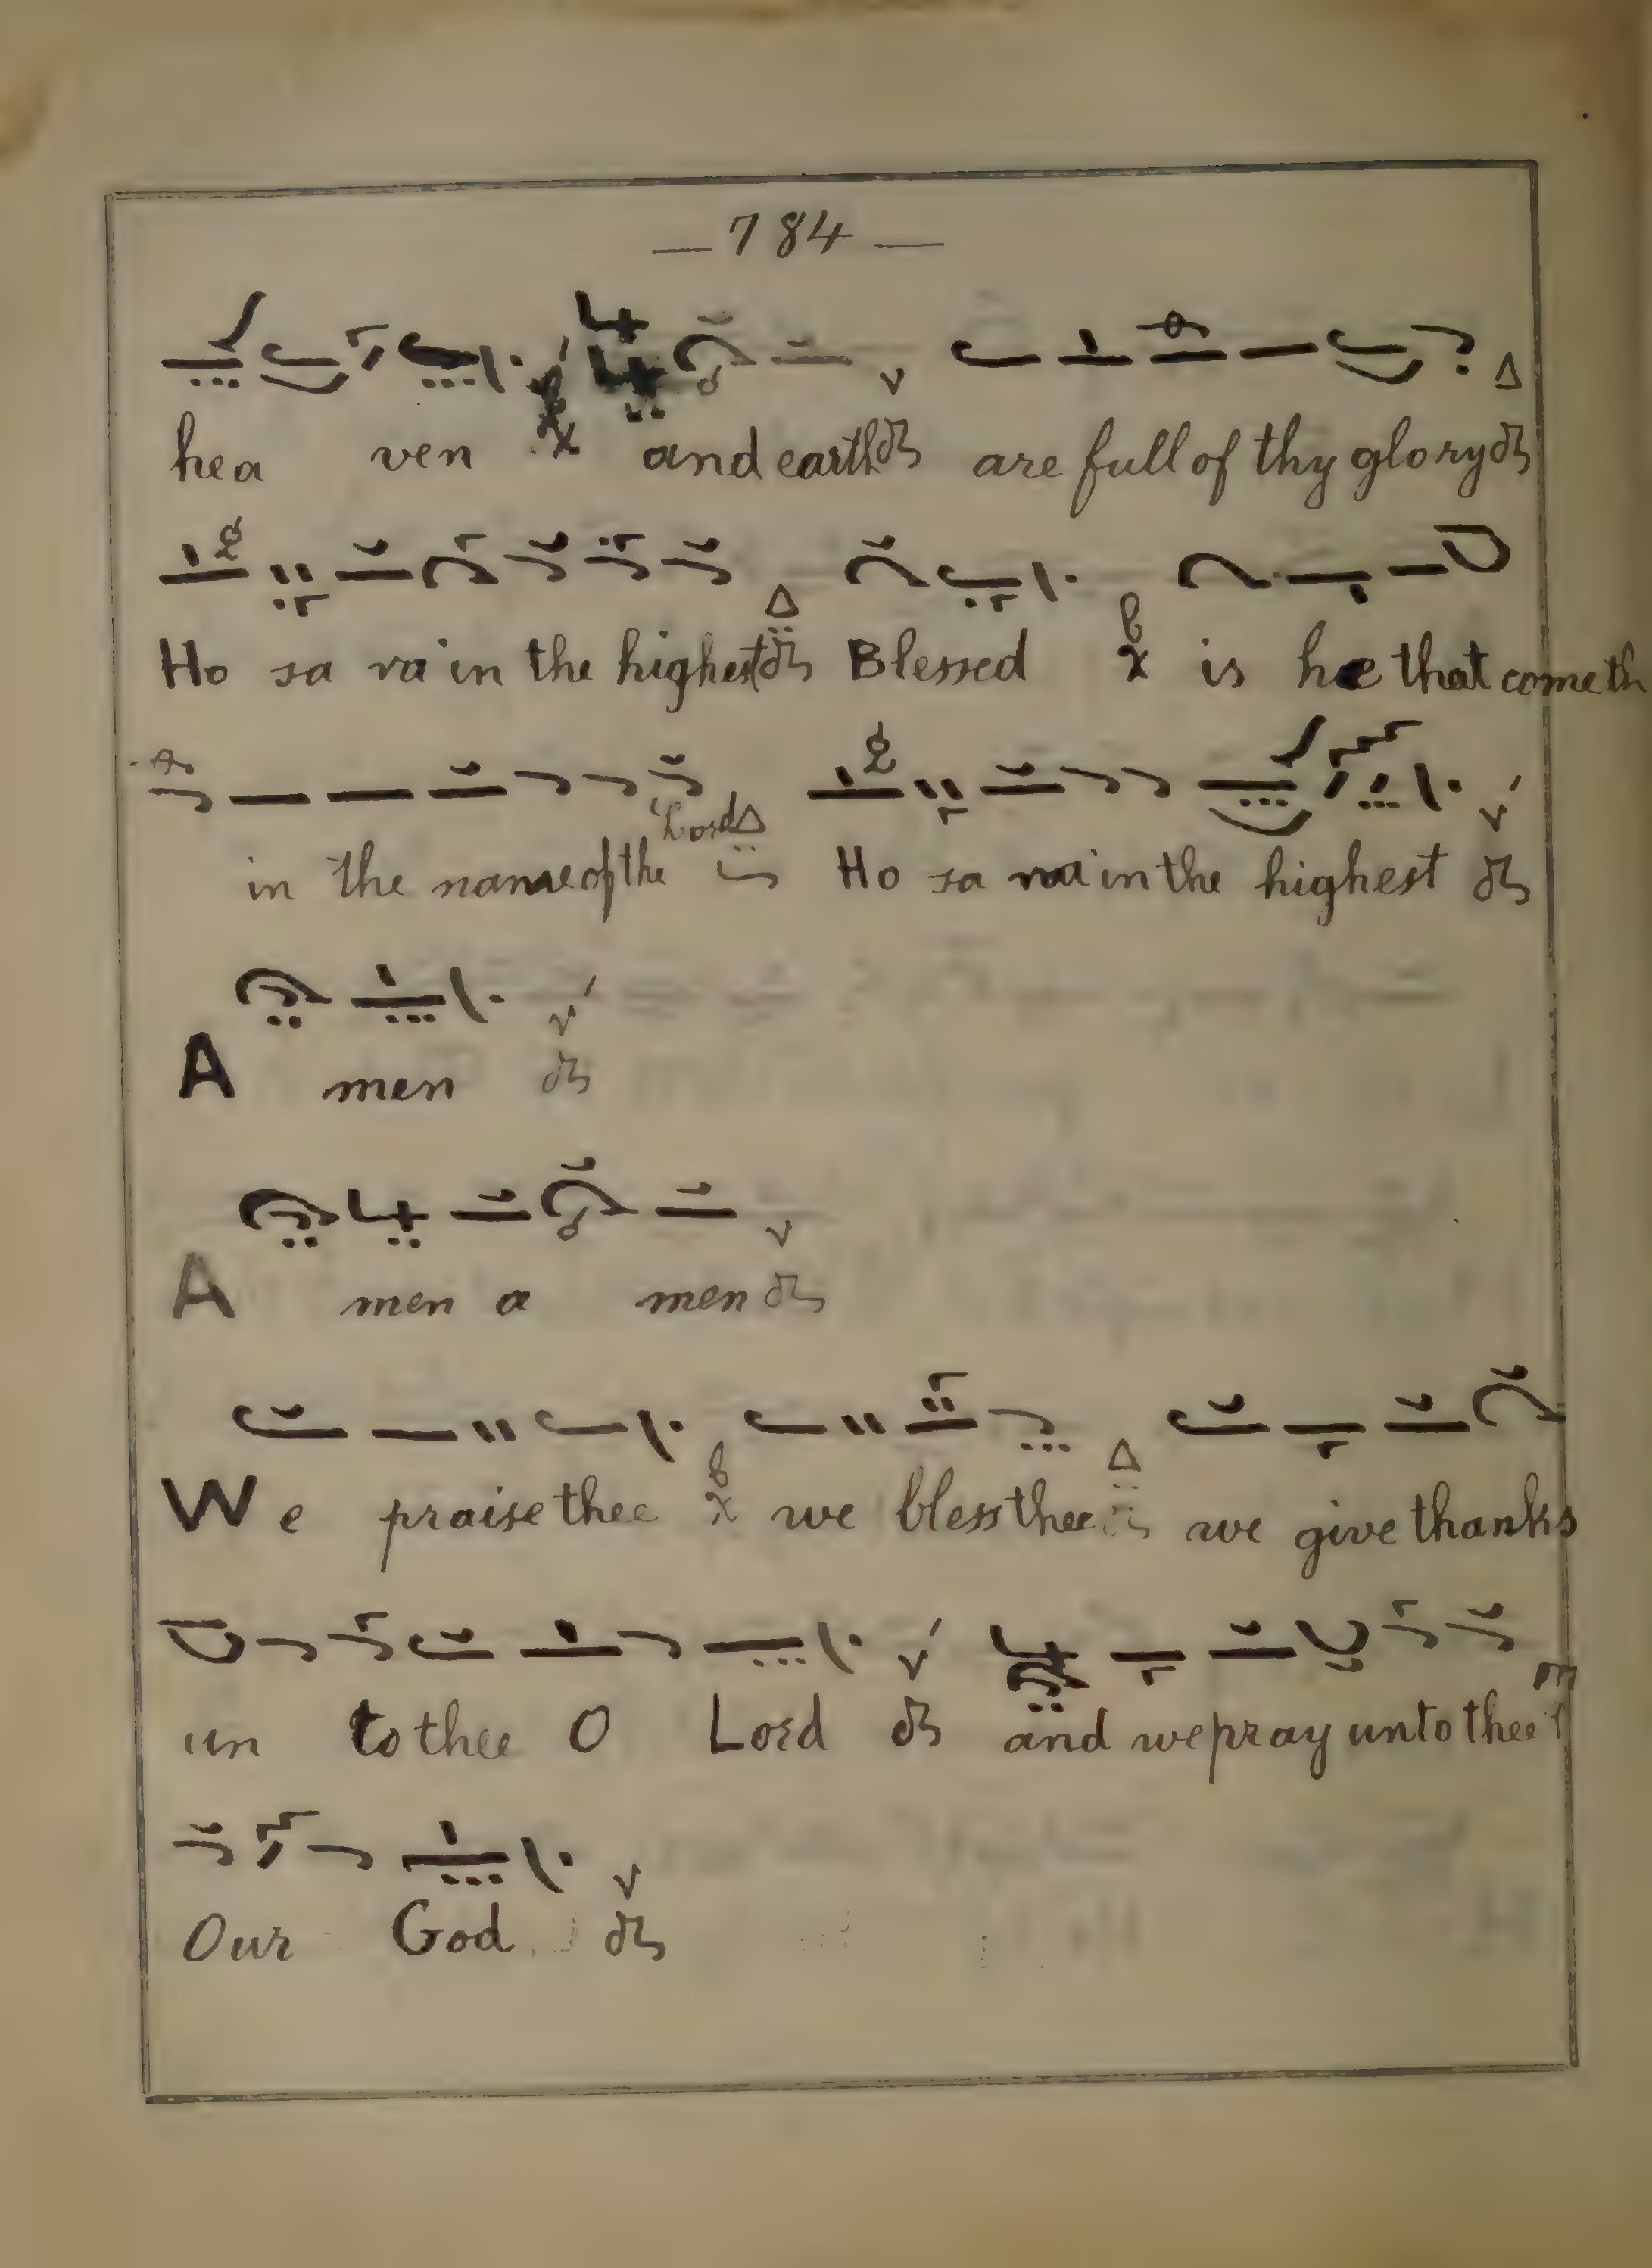 — 784 —
hea ven and earth are full of thy glory
Ho sa na in the highest Blessed is he that cometh
in the name of the Lord Ho sa na in the highest
A men
A men a men
We praise thee we bless thee we give thanks
un to thee O Lord and we pray unto thee
Our God